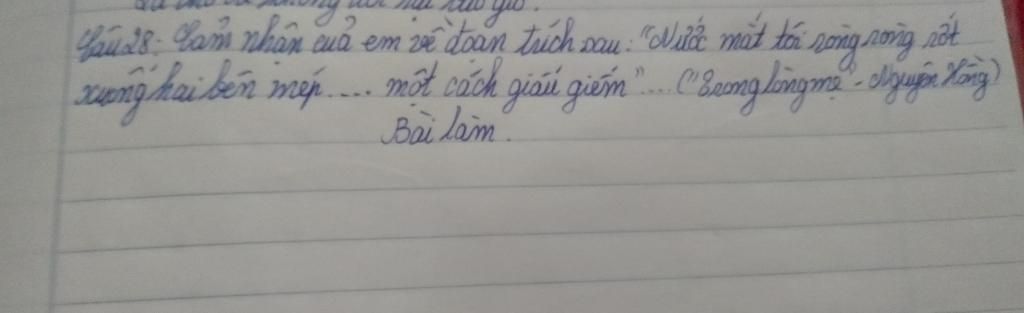 Câu 28: Cảm nhận của em về đoạn trích sau: "Nước mắt tôi ròng ròng rớt
xuống hai bên mép .... một cách giấu giếm" .... ("Trong lòng mẹ" - Nguyên Hồng)
Bài làm.